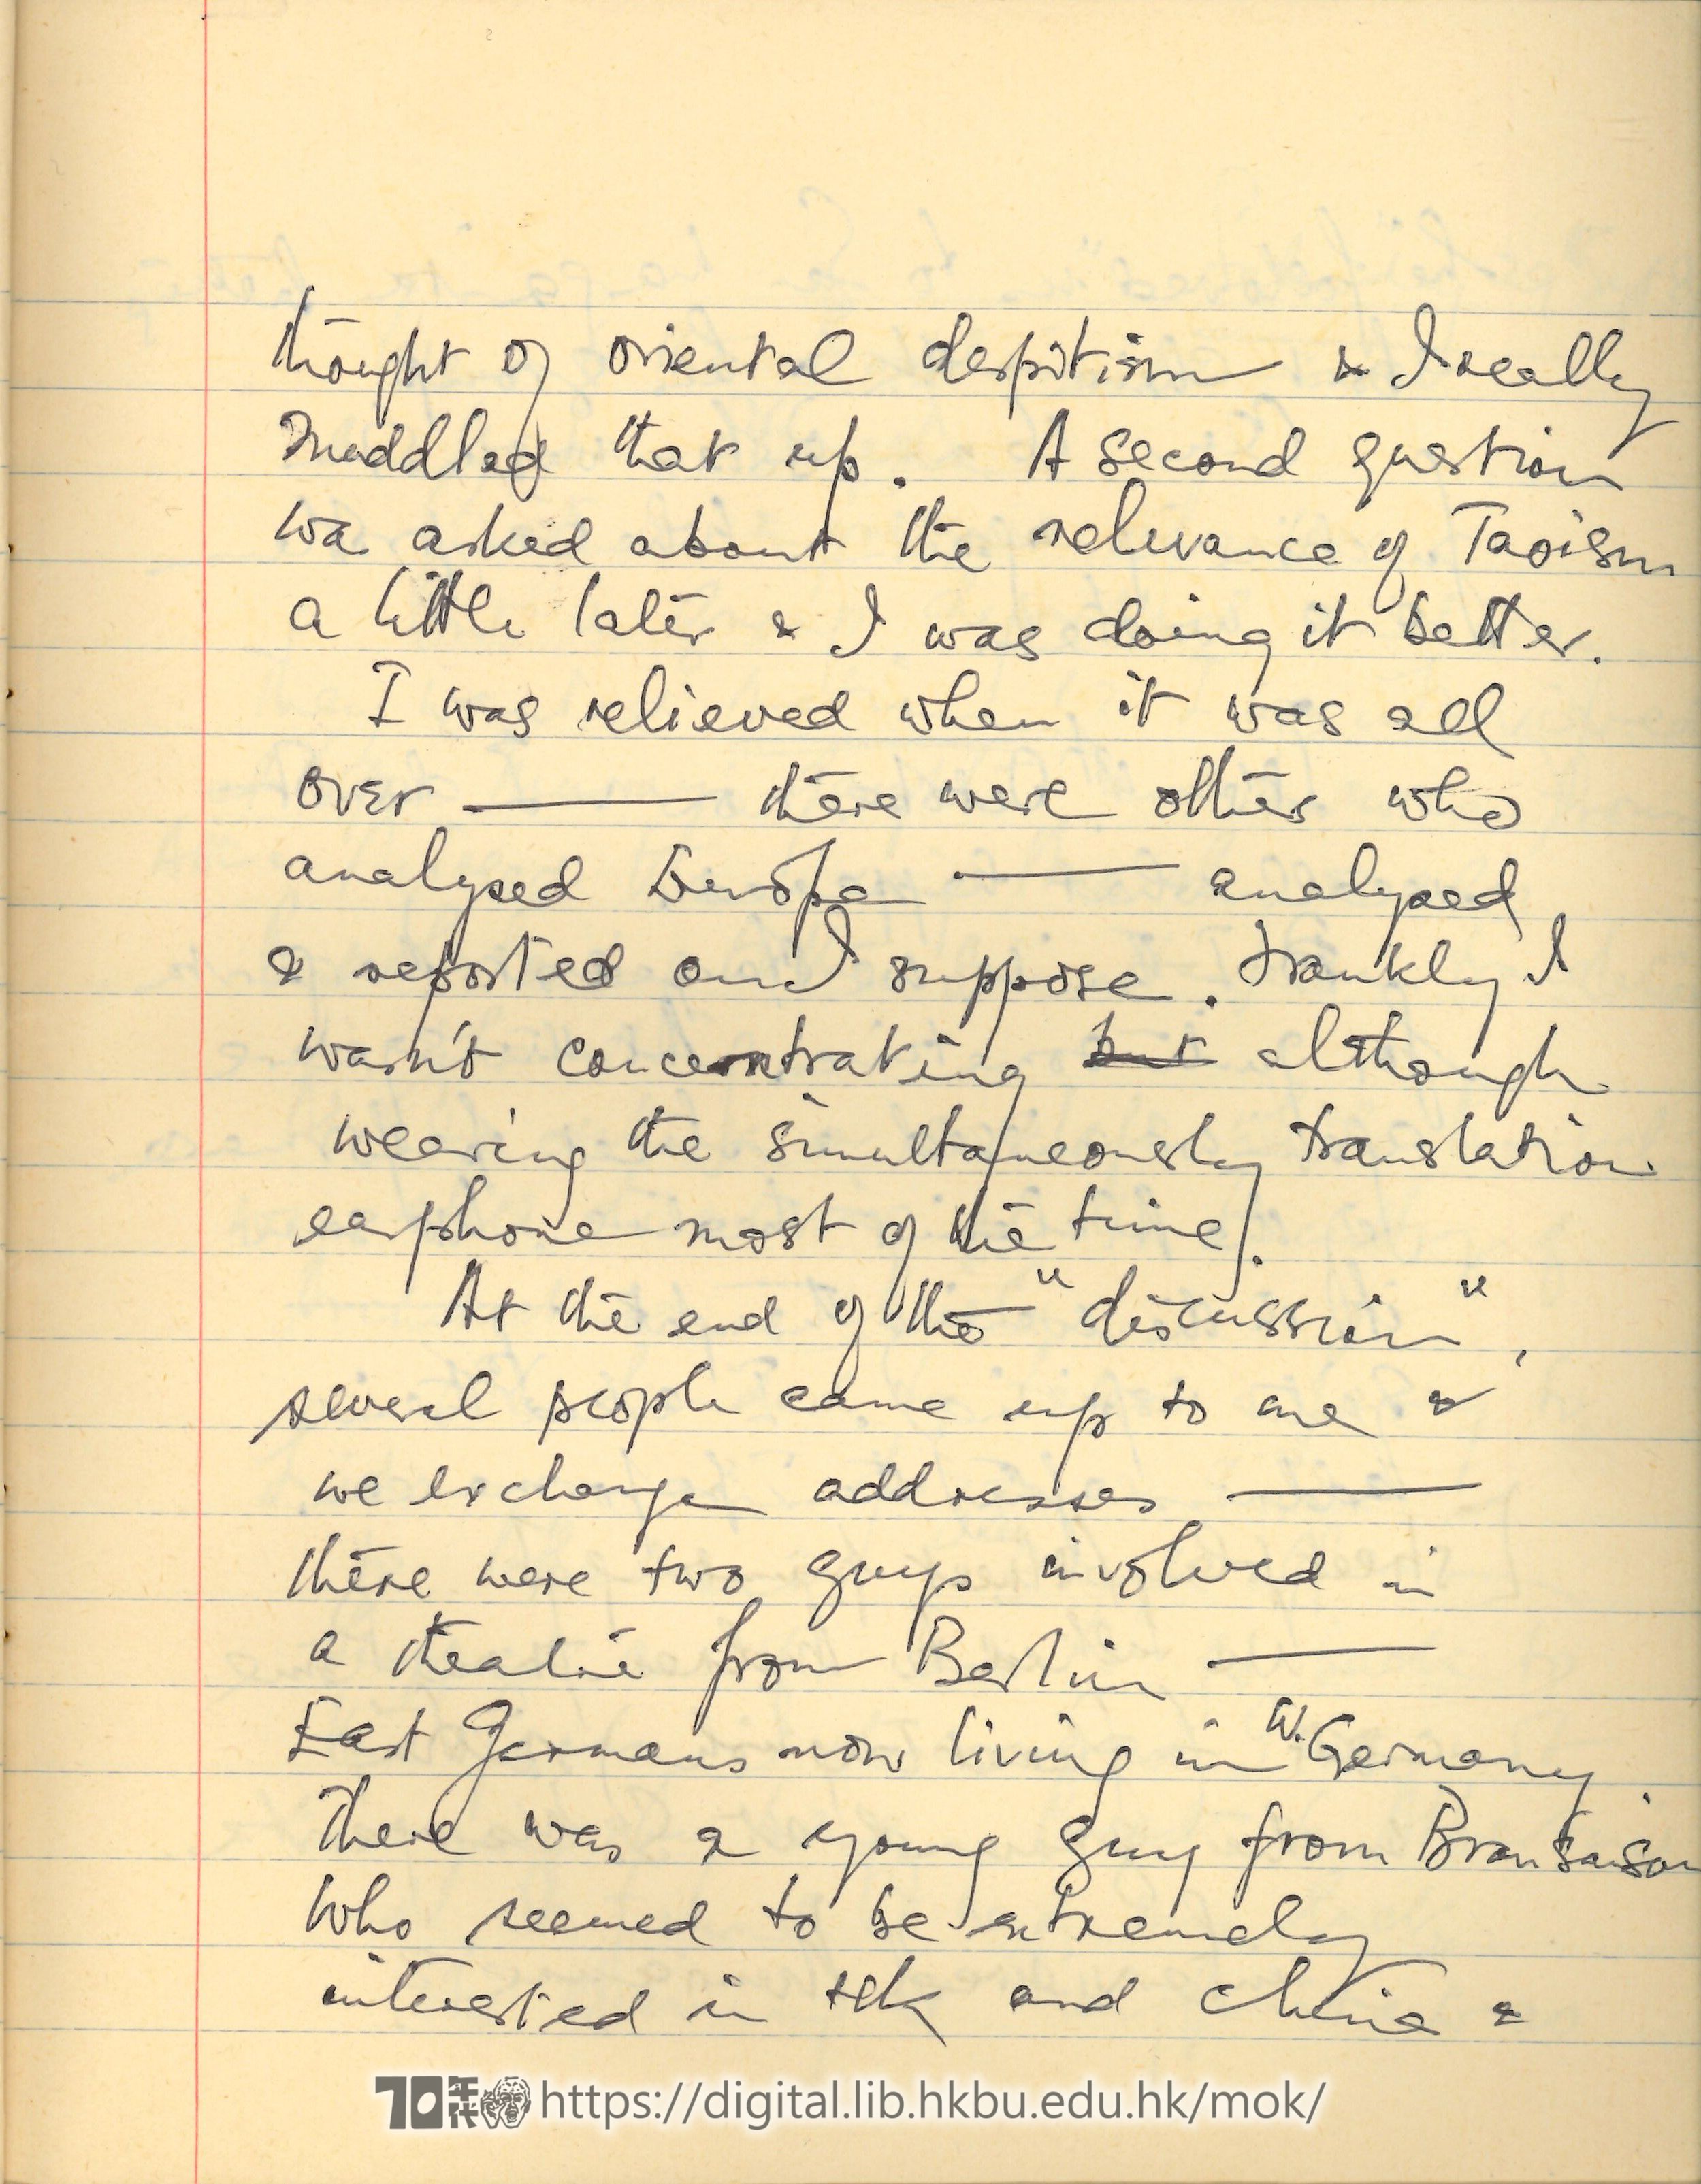 thought of oriental despitism & I really
muddled that up. A second question
wa asked about the relevance of Taoism
a little later & I was doing it better.
I was relieved when it was all
over —— there were others who
analysed Europe —— analysed
& reported on I suppose. Frankly I
wasn't concentrating but although
wearing the simultaneously translation
earphone most of the time.
At the end of the "discussion",
several people came up to me &
we exchange addresses ——
there were two guys involved in
a theatre from Berlin ——
East Germans now living in W. Germany.
There was a young guy from
who seemed to be extremely
interested in HK and China &
70年代 https://digital.lib.hkbu.edu.hk/mok/